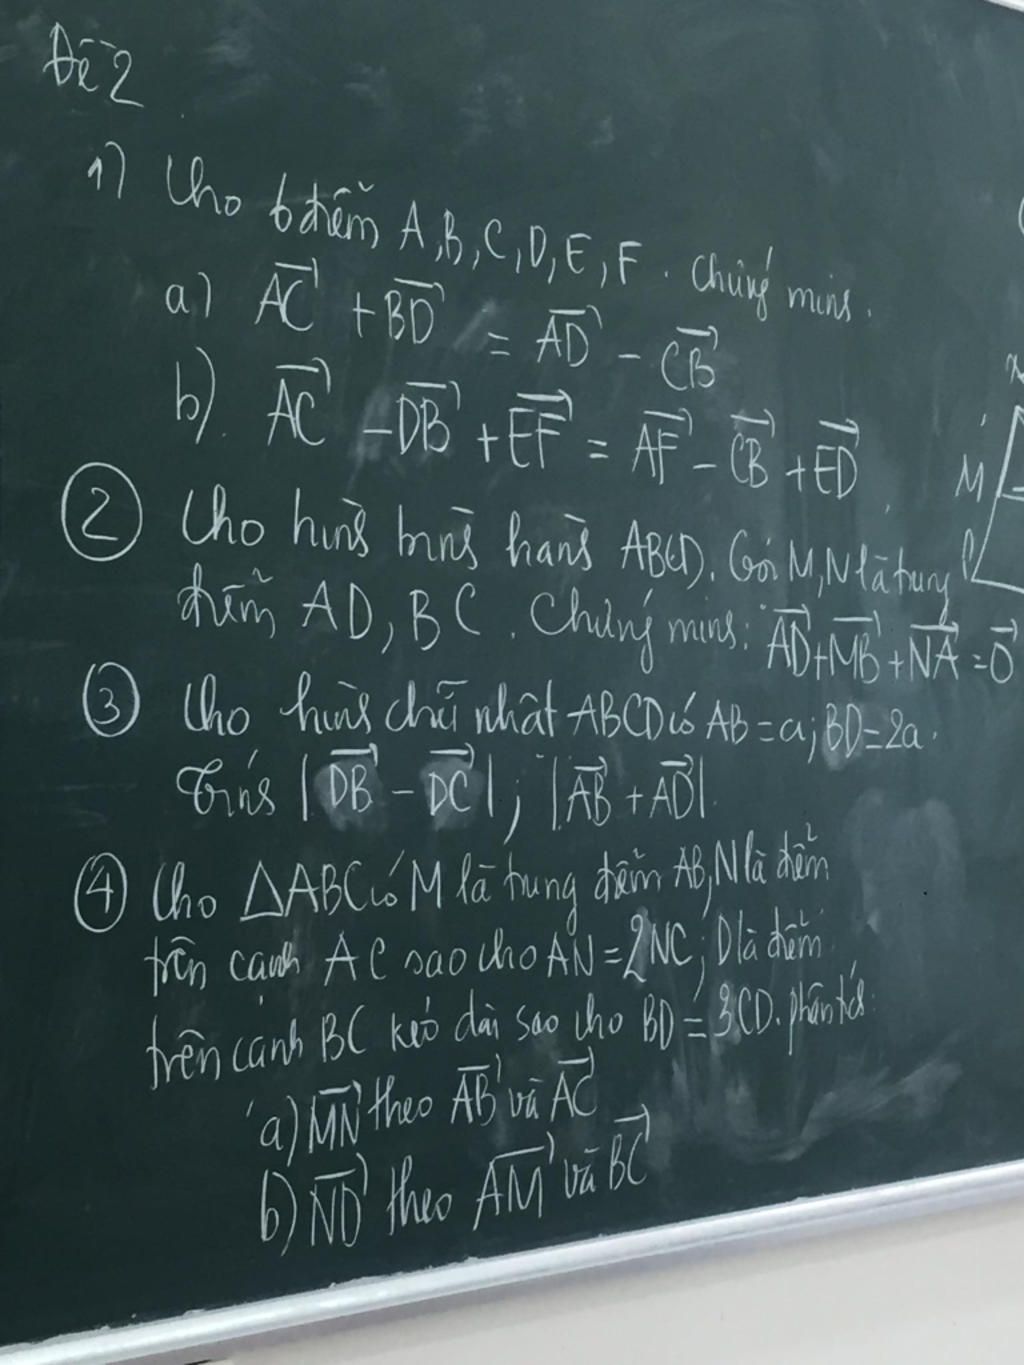 Đề 2
1) Cho 6 điểm A, B, C, D, E, F. Chứng minh.
a) $\overrightarrow{AC} + \overrightarrow{BD} = \overrightarrow{AD} - \overrightarrow{CB}$
b). $\overrightarrow{AC} - \overrightarrow{DB} + \overrightarrow{EF} = \overrightarrow{AF} - \overrightarrow{CB} + \overrightarrow{ED}$
② Cho hình bình hành ABCD. Gọi M, N là trung
điểm AD, BC. Chứng minh: $\overrightarrow{AD} + \overrightarrow{MB} + \overrightarrow{NA} = \overrightarrow{0}$
③ Cho hình chữ nhật ABCD có AB = a; BD = 2a.
Tính $|\overrightarrow{DB} - \overrightarrow{DC}|$; $|\overrightarrow{AB} + \overrightarrow{AD}|$.
④ Cho ΔABC có M là trung điểm AB, N là điểm
trên cạnh AC sao cho AN = 2NC; D là điểm
trên cạnh BC kéo dài sao cho BD = 3CD. phân tích:
a) $\overrightarrow{MN}$ theo $\overrightarrow{AB}$ và $\overrightarrow{AC}$
b) $\overrightarrow{ND}$ theo $\overrightarrow{AM}$ và $\overrightarrow{BC}$
M